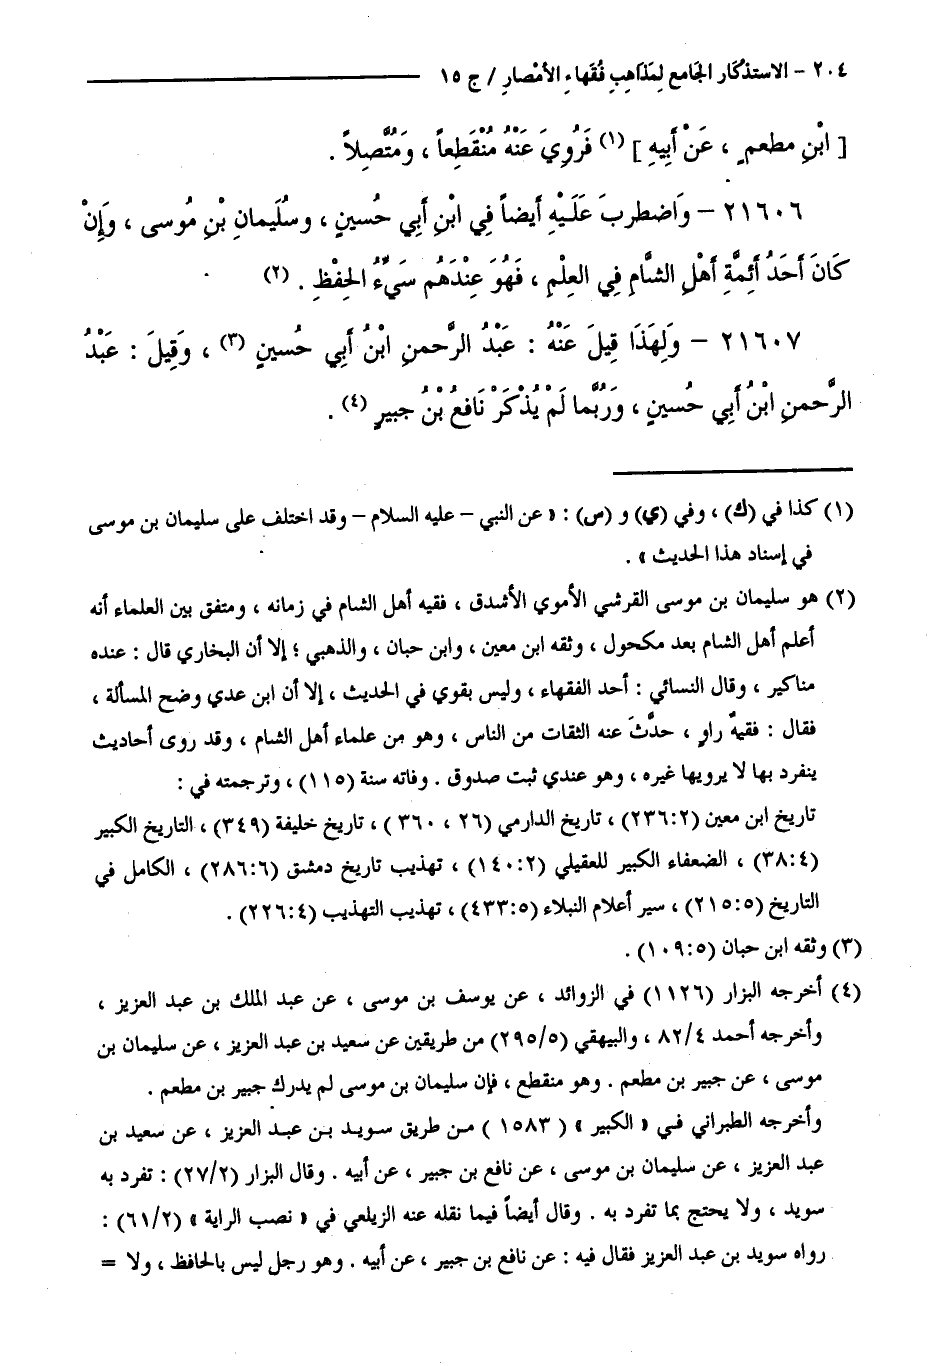 ٢٠٤ – الاستذكار الجامع لِمَذاهِبِ فُقَهاءِ الأمْصارِ / ج ١٥
[ ابْنِ مطعمٍ ، عَنْ أَبِيهِ ] (١) فَرُوِيَ عَنْهُ مُنْقَطِعاً ، وَمُتَّصِلاً .
٢١٦٠٦ – وَاضطربَ عَلَيْهِ أَيضاً فِي ابْنِ أَبِي حُسينٍ ، وسُلَيمانِ بْنِ مُوسى ، وَإِنْ
كَانَ أَحَدُ أَئِمَّةِ أَهْلِ الشَّامِ فِي العِلْمِ ، فَهُوَ عِنْدَهُم سَيِّءُ الحِفْظِ . (٢)
٢١٦٠٧ – وَلِهَذَا قِيلَ عَنْهُ : عَبْدُ الرَّحمنِ ابْنُ أَبِي حُسينٍ (٣) ، وَقِيلَ : عَبْدُ
الرَّحمنِ ابْنُ أَبِي حُسينٍ ، وَرُبَّما لَمْ يُذْكَرْ نَافعُ بْنُ جبيرٍ (٤) .
(١) كذا في (ك) ، وفي (ي) و (س) : « عن النبي – عليه السلام – وقد اختلف على سليمان بن موسى
في إسناد هذا الحديث » .
(٢) هو سليمان بن موسى القرشي الأموي الأشدق ، فقيه أهل الشام في زمانه ، ومتفق بين العلماء أنه
أعلم أهل الشام بعد مكحول ، وثقه ابن معين ، وابن حبان ، والذهبي ؛ إلا أن البخاري قال : عنده
مناكير ، وقال النسائي : أحد الفقهاء ، وليس بقوي في الحديث ، إلا أن ابن عدي وضح المسألة ،
فقال : فقيهٌ راوٍ ، حدَّثَ عنه الثقات من الناس ، وهو من علماء أهل الشام ، وقد روى أحاديث
ينفرد بها لا يرويها غيره ، وهو عندي ثبت صدوق . وفاته سنة (١١٥) ، وترجمته في :
تاريخ ابن معين (٢٣٦:٢) ، تاريخ الدارمي (٢٦ ، ٣٦٠) ، تاريخ خليفة (٣٤٩) ، التاريخ الكبير
(٣٨:٤) ، الضعفاء الكبير للعقيلي (١٤٠:٢) ، تهذيب تاريخ دمشق (٢٨٦:٦) ، الكامل في
التاريخ (٢١٥:٥) ، سير أعلام النبلاء (٤٣٣:٥) ، تهذيب التهذيب (٢٢٦:٤) .
(٣) وثقه ابن حبان (١٠٩:٥) .
(٤) أخرجه البزار (١١٢٦) في الزوائد ، عن يوسف بن موسى ، عن عبد الملك بن عبد العزيز ،
وأخرجه أحمد ٨٢/٤ ، والبيهقي (٢٩٥/٥) من طريقين عن سعيد بن عبد العزيز ، عن سليمان بن
موسى ، عن جبير بن مطعم . وهو منقطع ، فإن سليمان بن موسى لم يدرك جبير بن مطعم .
وأخرجه الطبراني في « الكبير » (١٥٨٣) من طريق سويد بن عبد العزيز ، عن سعيد بن
عبد العزيز ، عن سليمان بن موسى ، عن نافع بن جبير ، عن أبيه . وقال البزار (٢٧/٢) : تفرد به
سويد ، ولا يحتج بما تفرد به . وقال أيضاً فيما نقله عنه الزيلعي في « نصب الراية » (٦١/٢) :
رواه سويد بن عبد العزيز فقال فيه : عن نافع بن جبير ، عن أبيه . وهو رجل ليس بالحافظ ، ولا =